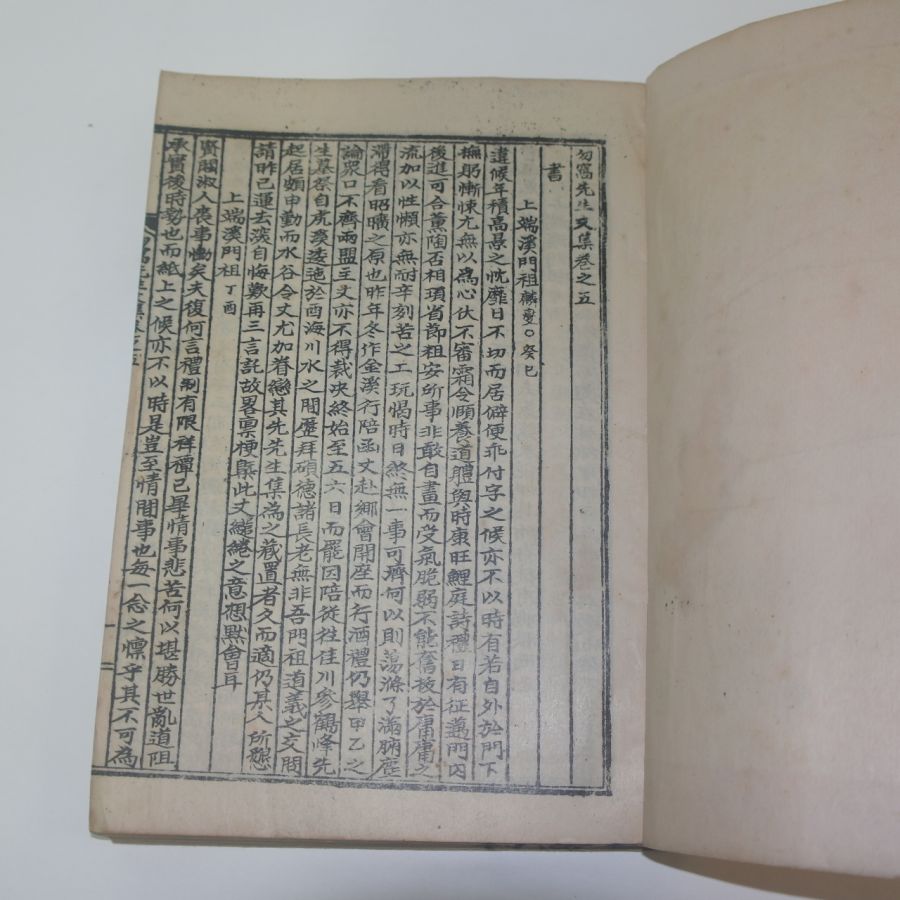 勿窩先生文集卷之五
書
上端溪門祖麟燮○癸巳
違候年積高景之忱靡日不切而居僻便乖付字之候亦不以時有若自外於門下
撫躬慚悚尤無以爲心伏不審霜令頤養道體與時康旺鯉庭詩禮日有征邁門內
後進可合薰陶否相瑣省節粗安所事非敢自畫而受氣脆弱不能奮被於庸庸之
流加以性懶亦無耐辛刻苦之工玩愒時日然無一事可濟何以則蕩滌了滿腑塵
滯得看昭曠之原也昨年冬作金溪行陪函丈赴鄉會開座而行酒禮仍舉甲乙之
論衆口不齊兩盟主丈亦不得裁決終始至五六日而罷因陪從往住川參鶴峰先
生墓祭自虎溪逶迤於酉海川水之間歷拜碩德諸長老無非吾門祖道義之交問
起居頗申勤而水谷令丈尤加眷戀其先先生集爲之藏置者久而適仍某人所懇
請昨已運去深自悔歎再三言託故畧稟梗槩此丈繾綣之意想默會耳
上端溪門祖丁酉
賢閤淑人喪事慟矣夫復何言禮制有限祥禫已畢情事悲苦何以堪勝世亂道阻
承實後時勢也而紙上之候亦不以時是豈至情間事也每一念之懍乎其不可爲